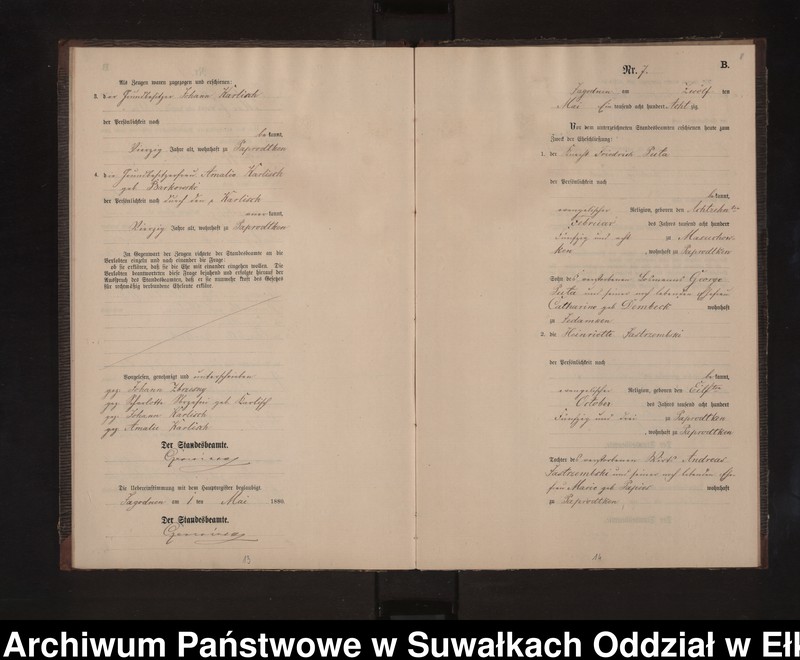 Als Zeugen waren zugezogen und erschienen:
3. der Grundbesitzer Johann Karlisch
der Persönlichkeit nach
be kannt,
Vierzig Jahre alt, wohnhaft zu Paprodtken
4. die Grundbesitzerfrau Amalia Karlisch
geb Barkowski
der Persönlichkeit nach durch den Karlisch
aner kannt,
Vierzig Jahre alt, wohnhaft zu Paprodtken
In Gegenwart der Zeugen richtete der Standesbeamte an die
Verlobten einzeln und nach einander die Frage:
ob sie erklären, daß sie die Ehe mit einander eingehen wollen. Die
Verlobten beantworteten diese Frage bejahend und erfolgte hierauf der
Ausspruch des Standesbeamten, daß er sie nunmehr kraft des Gesetzes
für rechtmäßig verbundene Eheleute erkläre.
Vorgelesen, genehmigt und unterschrieben
gez. Johann
gez Charlotte geb Karlisch
gez Johann Karlisch
gez Amalie Karlisch
Der Standesbeamte.
Die Uebereinstimmung mit dem Hauptregister beglaubigt.
Jagodnen am 1. ten Mai 1880.
Der Standesbeamte.
13
8
B.
Nr. 7.
Jagodnen am Zwölf ten
Mai Ein tausend acht hundert Acht zig
Vor dem unterzeichneten Standesbeamten erschienen heute zum
Zweck der Eheschließung:
1. der Knecht Friedrich
der Persönlichkeit nach
be kannt,
evangelischer Religion, geboren den Achtzehn ten
Februar des Jahres tausend acht hundert
fünfzig und acht zu
ken, wohnhaft zu Paprodtken
Sohn des verstorbenen George
und seiner noch lebenden Ehefrau
Catharine geb Dembeck wohnhaft
zu
2. die Heinriette Jastrzembski
der Persönlichkeit nach
be kannt,
evangelischer Religion, geboren den Eilf ten
October des Jahres tausend acht hundert
fünfzig und drei zu Paprodtken
, wohnhaft zu Paprodtken
Tochter des verstorbenen Wirth Andreas
Jastrzembski und seiner noch lebenden Ehe
frau Marie geb wohnhaft
zu Paprodtken
14
Archiwum Państwowe w Suwałkach Oddział w Ełk